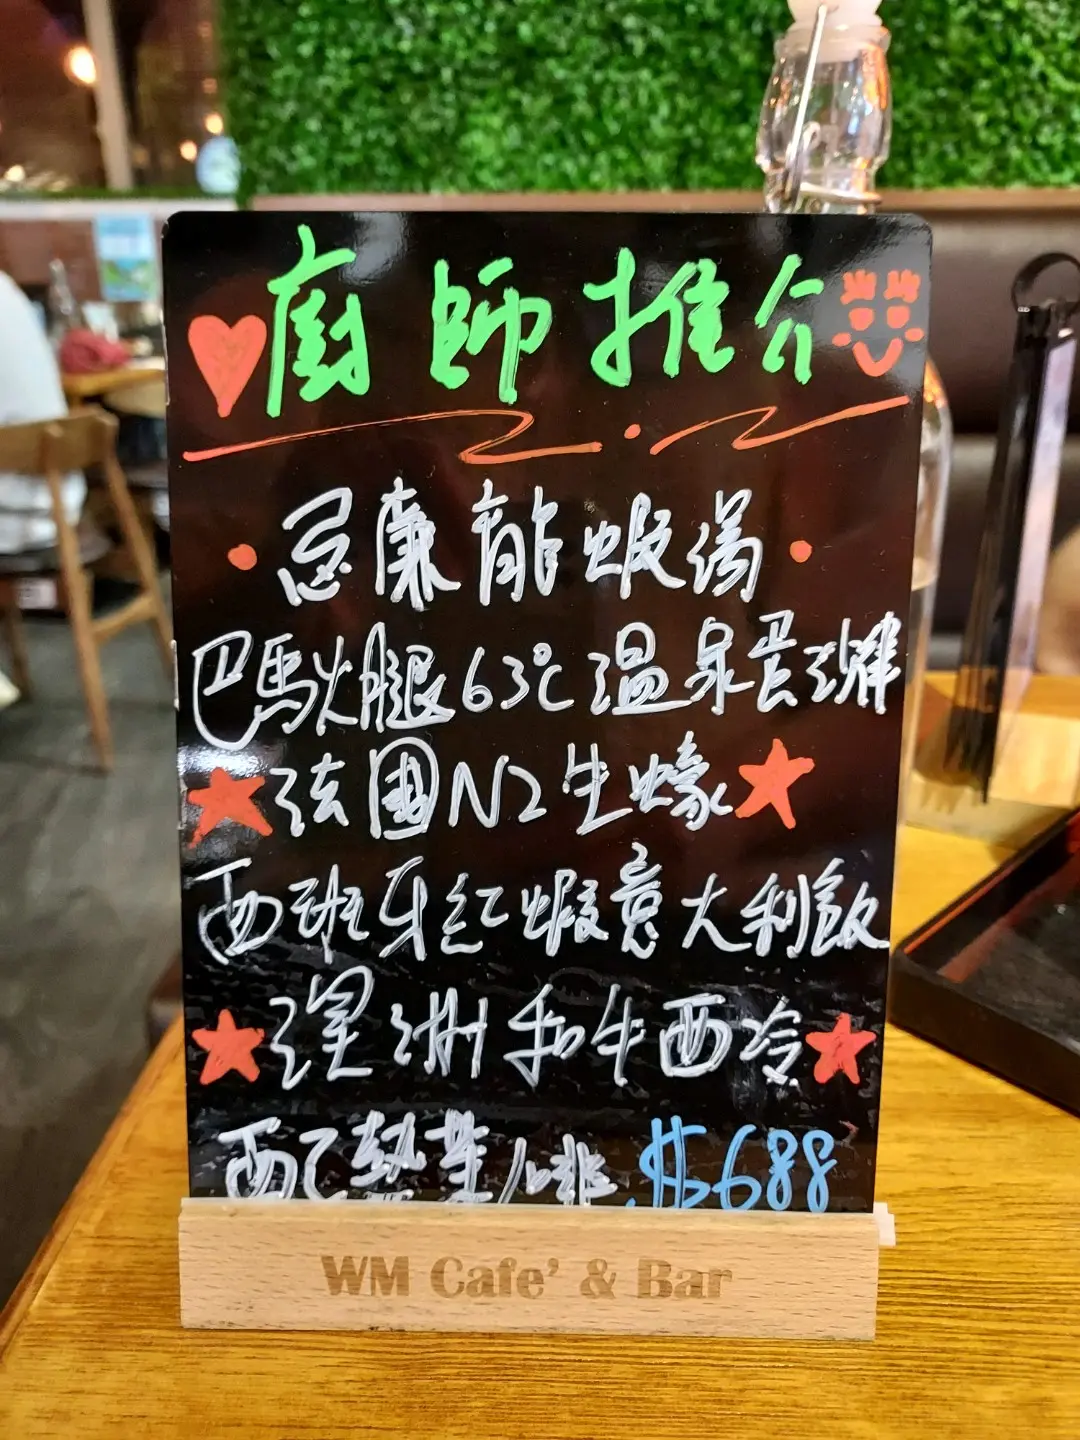 廚師推介
忌廉龍蝦湯
巴馬火腿63℃溫泉蛋沙律
法國N2生蠔
西班牙紅蝦意大利飯
澳洲和牛西冷
配熱茶/啡 $688
WM Cafe' & Bar